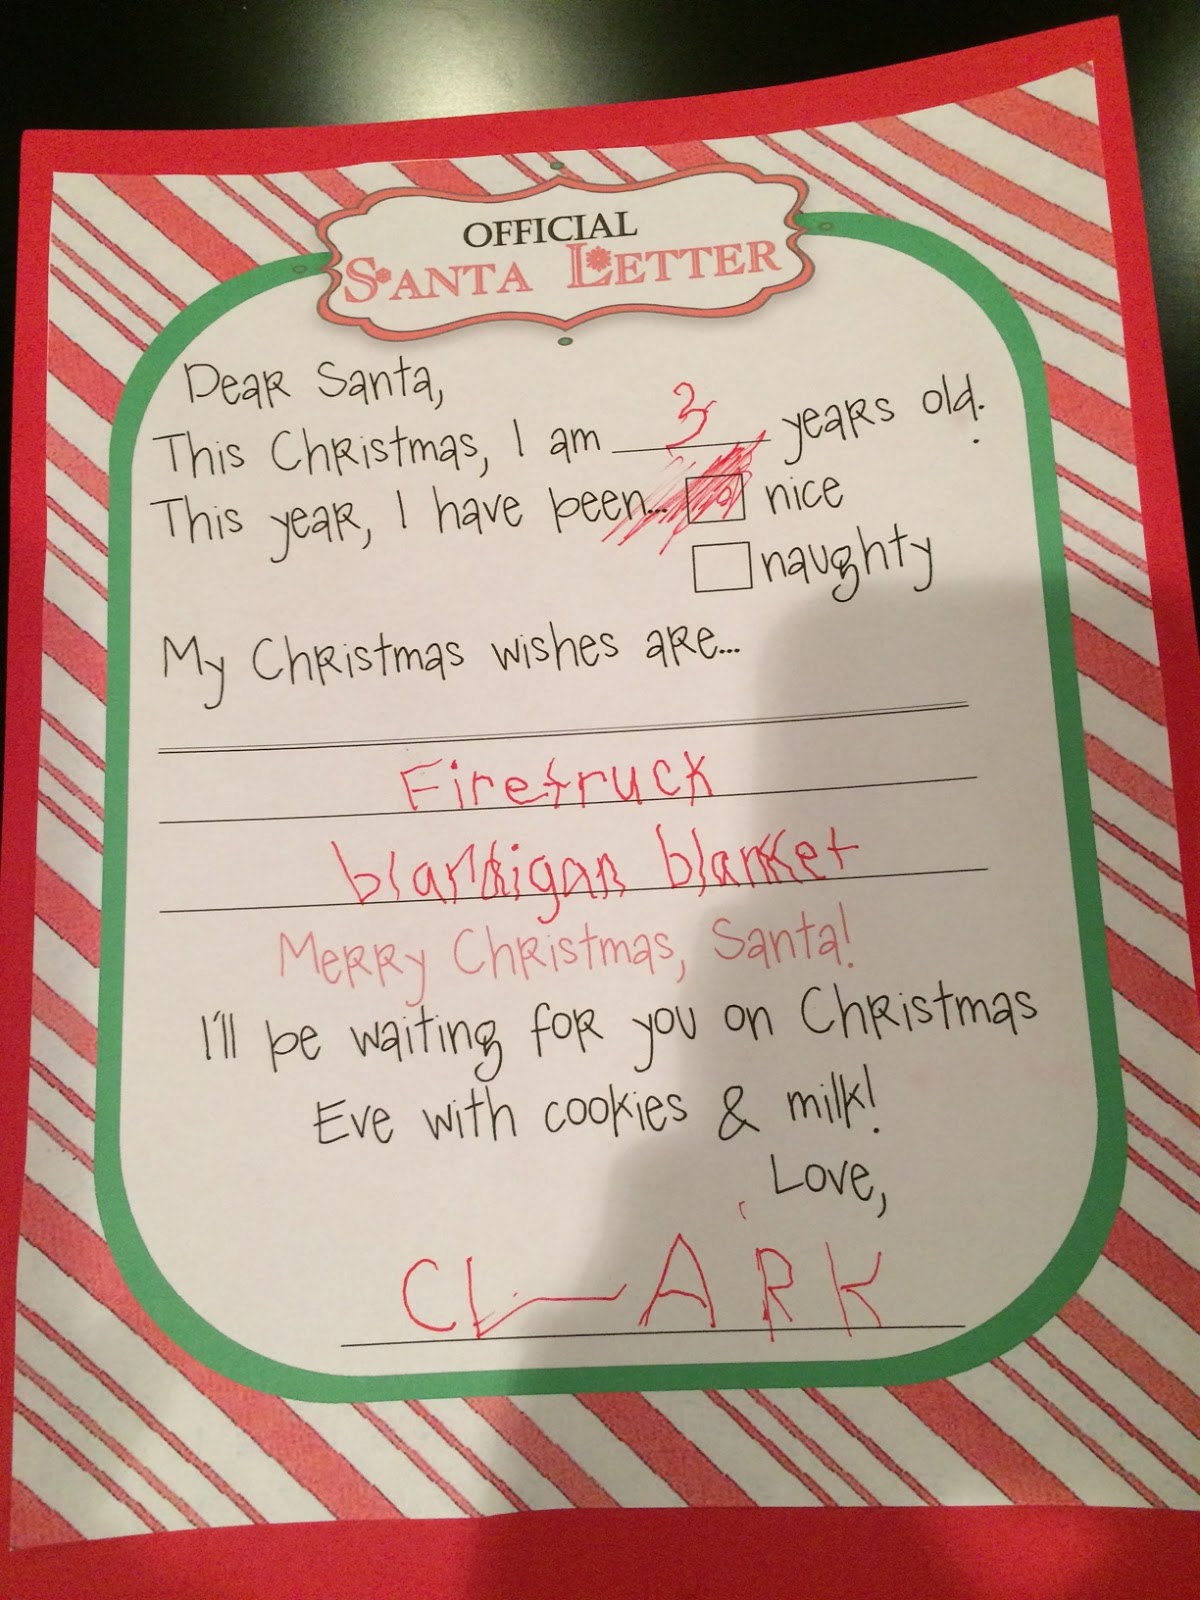 OFFICIAL
SANTA LETTER
Dear Santa,
This Christmas, I am 3 years old.
This year, I have been... nice
naughty
My Christmas wishes are...
Firetruck
blandigan blanket
Merry Christmas, Santa!
I'll be waiting for you on Christmas
Eve with cookies & milk!
Love,
CLARK